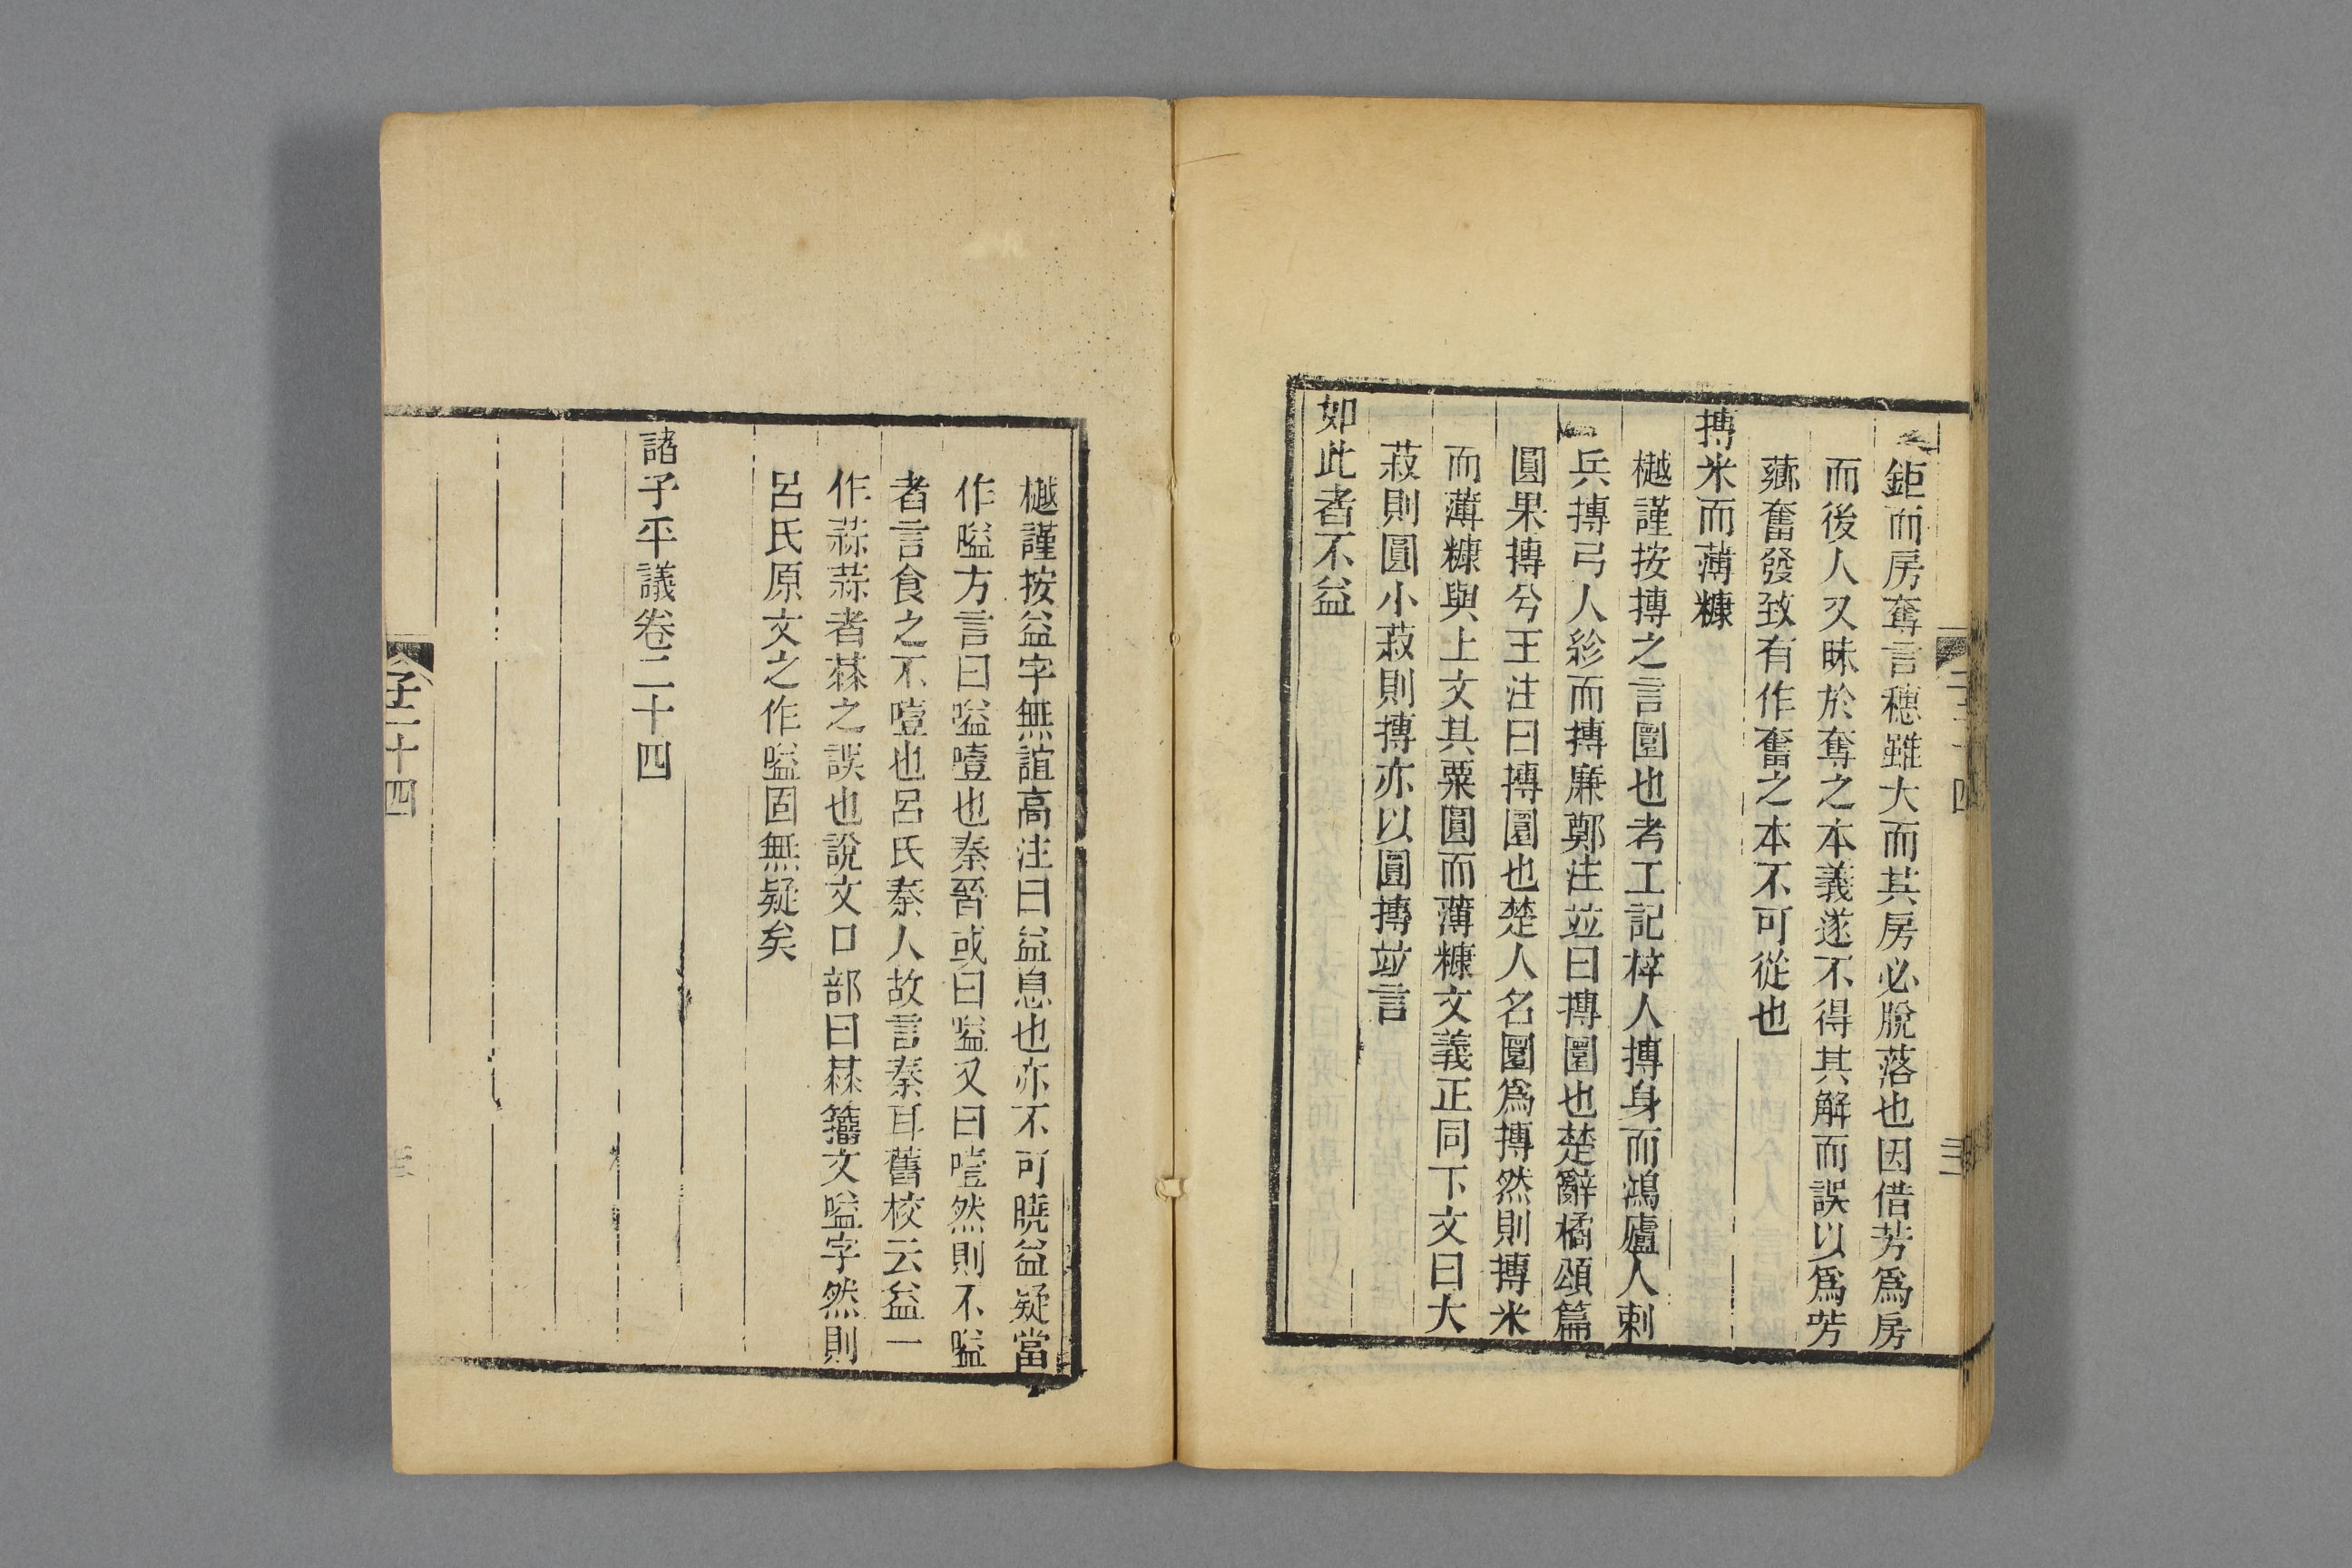 鉅而房奪言穗雖大而其房必脫落也因借芳爲房
而後人又昧於奪之本義遂不得其解而誤以爲芳
薌奮發致有作奮之本不可從也
摶米而薄糠
樾謹按摶之言圜也考工記梓人摶身而鴻廬人刺
兵摶弓人紾而摶廉鄭注竝曰摶圜也楚辭橘頌篇
圓果摶兮王注曰摶圜也楚人名圜爲摶然則摶米
而薄糠與上文其粟圓而薄糠文義正同下文曰大
菽則圓小菽則摶亦以圓摶竝言
如此者不益
樾謹按益字無誼高注曰益息也亦不可曉益疑當
作嗌方言曰嗌噎也秦晉或曰嗌又曰噎然則不嗌
者言食之不噎也呂氏秦人故言秦耳舊校云益一
作蒜蒜者䔲之誤也說文口部曰䔲籒文嗌字然則
呂氏原文之作嗌固無疑矣
諸子平議卷二十四
子二十四